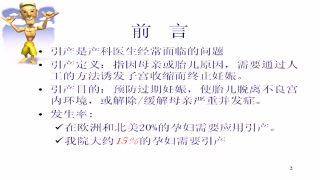 前 言
• 引产是产科医生经常面临的问题
• 引产定义：指因母亲或胎儿原因，需要通过人
工的方法诱发子宫收缩而终止妊娠。
• 引产目的：预防过期妊娠，使胎儿脱离不良宫
内环境，或解除/缓解母亲严重并发症。
• 发生率：
✓在欧洲和北美20%的孕妇需要应用引产。
✓我院大约15%的孕妇需要引产
2